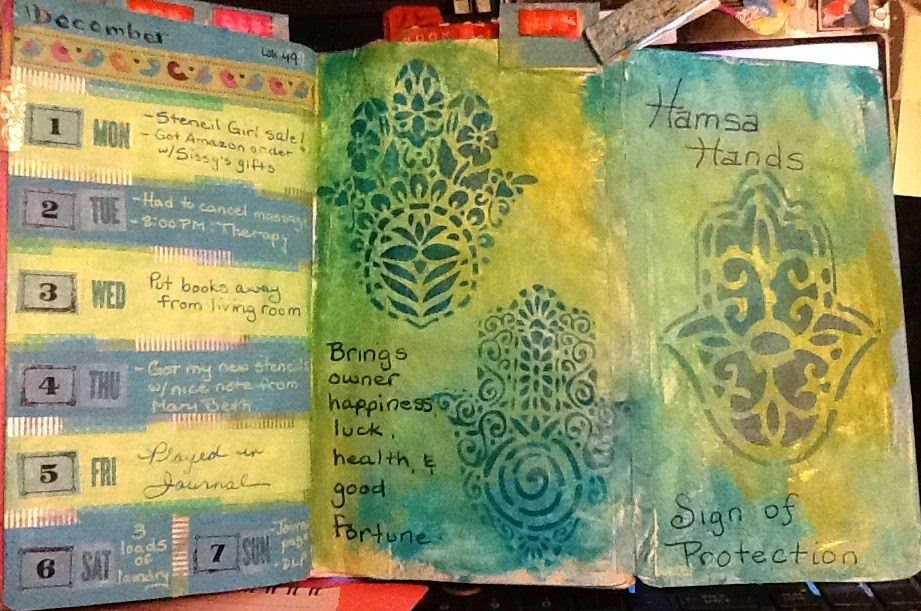 December
Wk 49
1 MON
- Stencil Girl sale!
- Got Amazon order
w/Sissy's gifts
2 TUE
- Had to cancel massage
- 8:00 PM: Therapy
3 WED
Put books away
from living room
4 THU
- Got my new stencils
w/nice note from
Mary Beth
5 FRI
Played in
Journal
6 SAT
3
loads
of
laundry
7 SUN
Brings
owner
happiness,
luck,
health, &
good
fortune.
Hamsa
Hands
Sign of
Protection